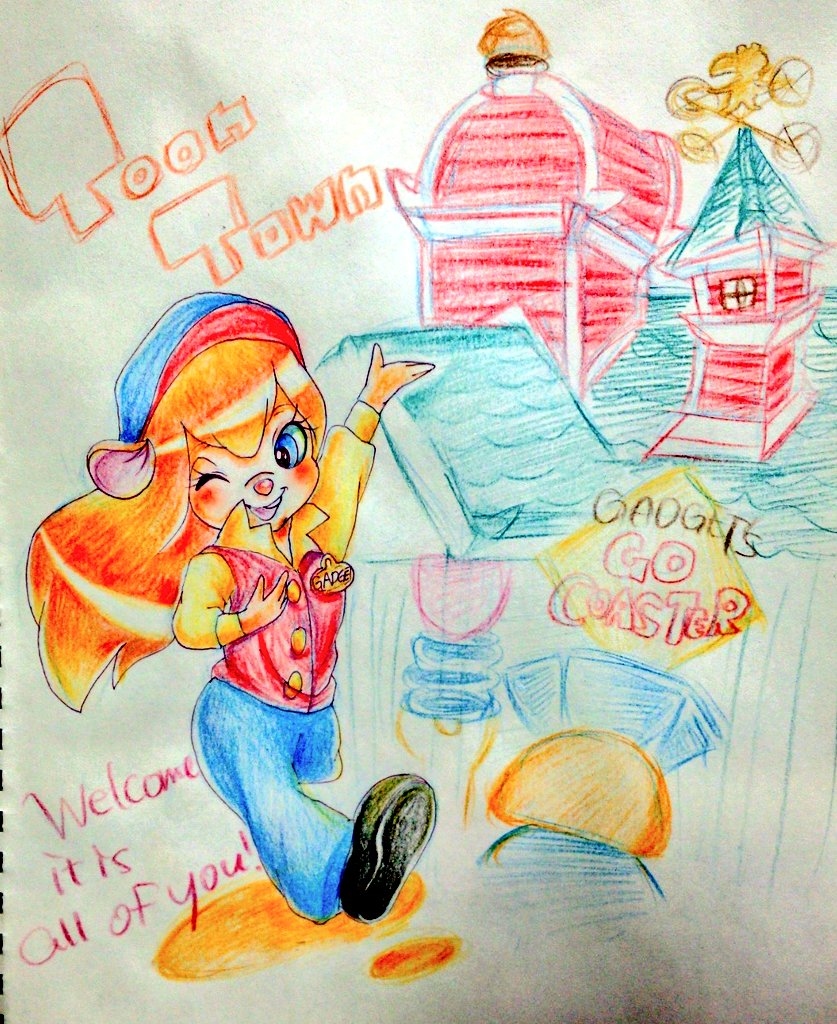 Toon
Town
GADGET
GADGET'S
GO
COASTER
Welcome
it is
all of you!